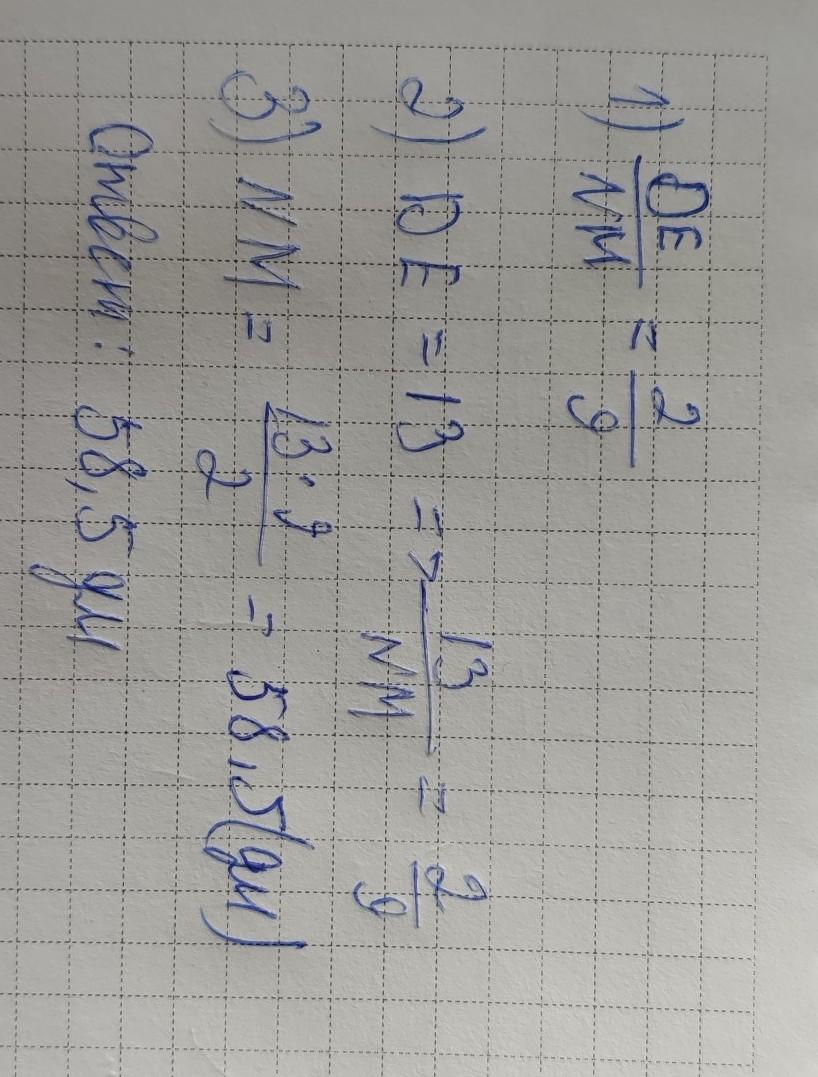 1) DE/NM = 2/9
2) DE = 13 => 13/NM = 2/9
3) NM = 13·9/2 = 58,5 (дм)
Ответ: 58,5 дм